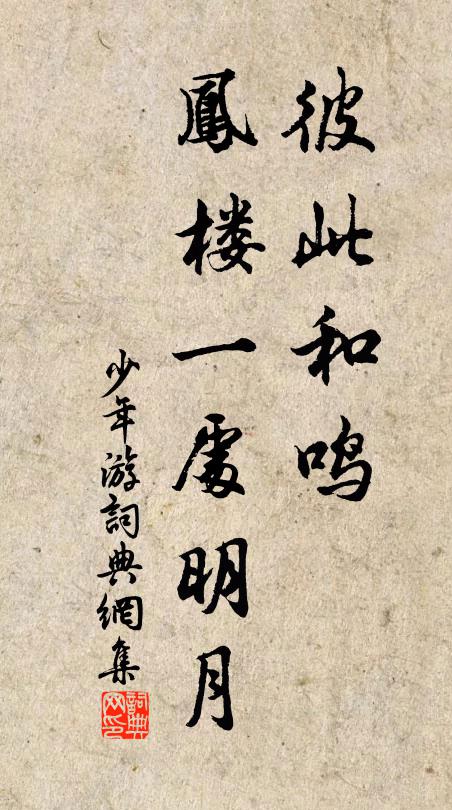 彼此和鸣
鳳楼一處明月
少年游詞典網集
詞典網印